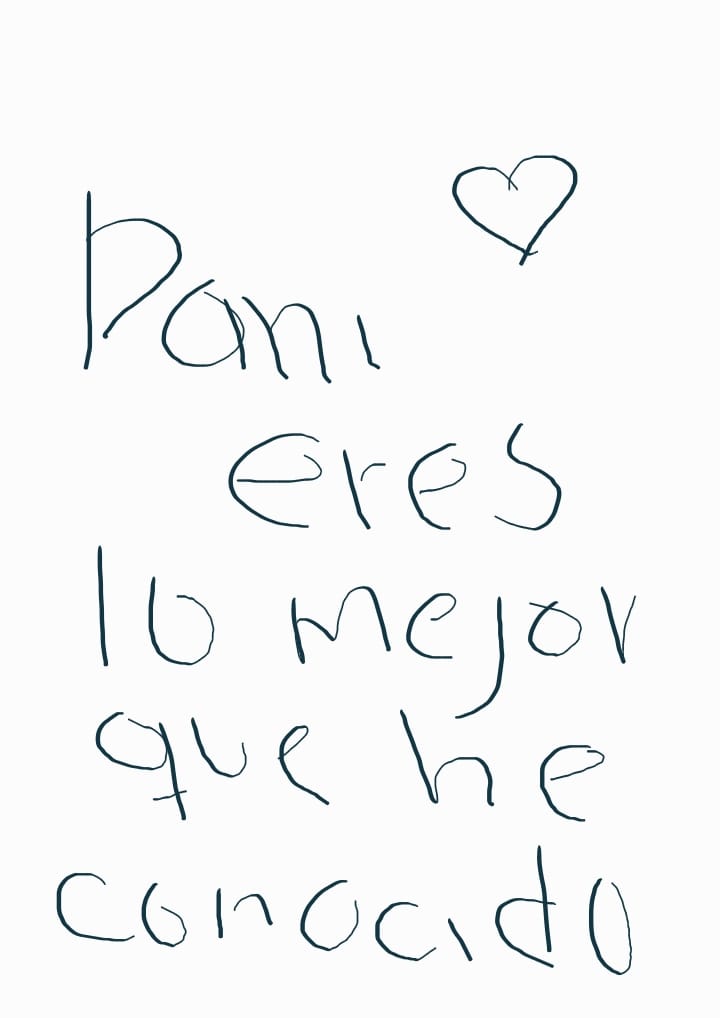 Dani
eres
lo mejor
que he
conocido